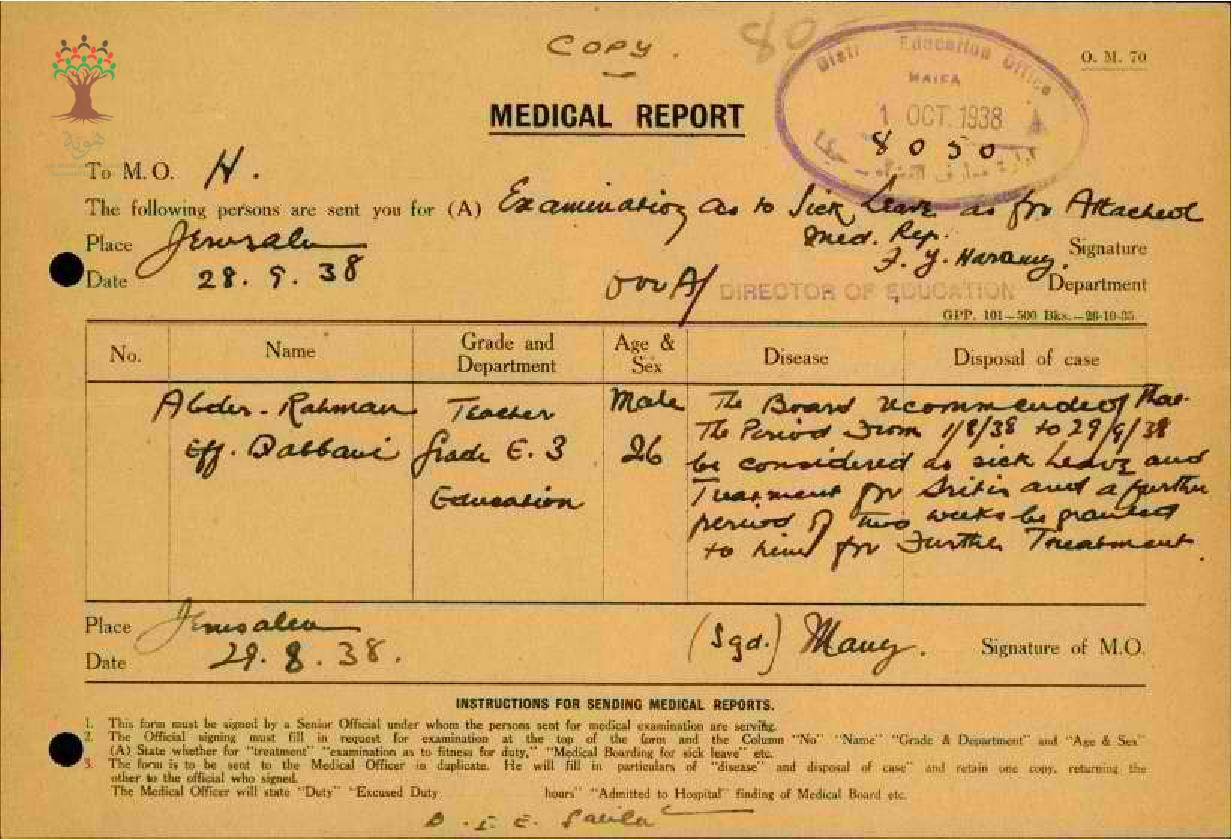 COPY.
80
O. M. 70
Distr Education Office
HAIFA
1 OCT. 1938
8050
هوية
MEDICAL REPORT
To M.O. H.
The following persons are sent you for (A) Examination as to Sick Leave as for Attached
Med. Rep.
Place Jerusalem
Signature
Date 28. 9. 38
for A/ DIRECTOR OF EDUCATION Department
GPP. 101—500 Bks.—26-10-35.
No. Name Grade and Department Age & Sex Disease Disposal of case
Abder-Rahman Teacher Male The Board recommended that
Eff. Dabbani Grade E. 3 26 the Period From 1/8/38 to 29/9/38
be considered as sick leave and
Education Treatment for and a further
period of two weeks be granted
to him for Further Treatment.
Place Jerusalem
Date 29. 8. 38.
(Sgd.) Signature of M.O.
INSTRUCTIONS FOR SENDING MEDICAL REPORTS.
1. This form must be signed by a Senior Official under whom the persons sent for medical examination are serving.
2. The Official signing must fill in request for examination at the top of the form and the Column "No" "Name" "Grade & Department" and "Age & Sex"
(A) State whether for "treatment" "examination as to fitness for duty," "Medical Boarding for sick leave" etc.
3. The form is to be sent to the Medical Officer in duplicate. He will fill in particulars of "disease" and disposal of case" and retain one copy, returning the
other to the official who signed.
The Medical Officer will state "Duty" "Excused Duty hours" "Admitted to Hospital" finding of Medical Board etc.